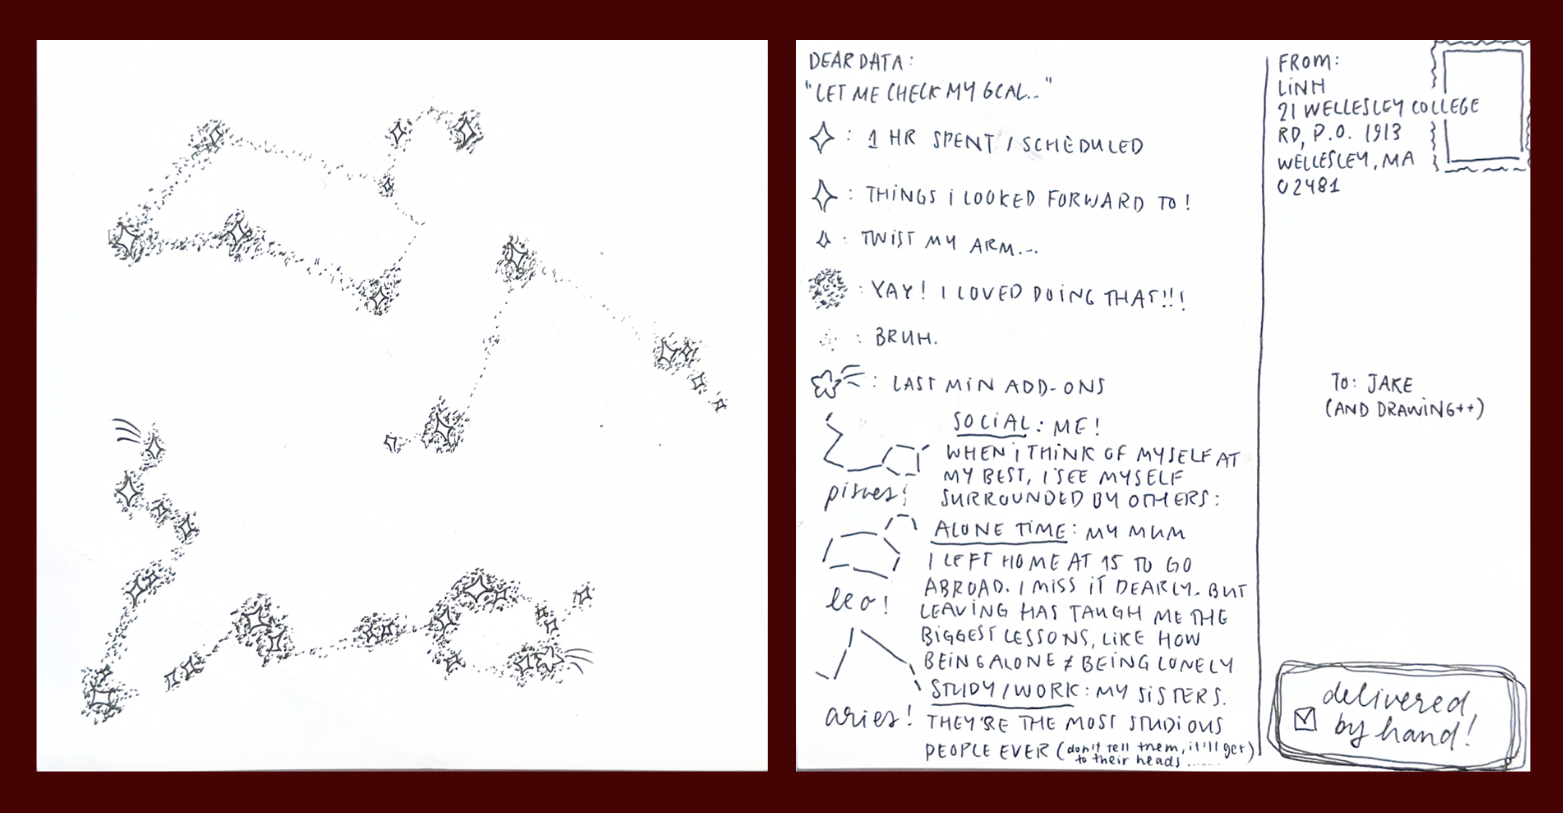 DEAR DATA:
"LET ME CHECK MY GCAL.."
: 1 HR SPENT / SCHEDULED
: THINGS I LOOKED FORWARD TO!
: TWIST MY ARM...
: YAY! I LOVED DOING THAT!!!
: BRUH.
: LAST MIN ADD-ONS
SOCIAL: ME!
WHEN I THINK OF MYSELF AT
MY BEST, I SEE MYSELF
SURROUNDED BY OTHERS:
pisces!
ALONE TIME: MY MUM
I LEFT HOME AT 15 TO GO
ABROAD. I MISS IT DEARLY. BUT
LEAVING HAS TAUGH ME THE
BIGGEST LESSONS, LIKE HOW
BEING ALONE ≠ BEING LONELY
leo!
STUDY/WORK: MY SISTERS.
THEY'RE THE MOST STUDIOUS
PEOPLE EVER (don't tell them, it'll get)
to their heads ......
aries!
FROM:
LINH
21 WELLESLEY COLLEGE
RD, P.O. 1913
WELLESLEY, MA
02481
TO: JAKE
(AND DRAWING++)
delivered
by hand!